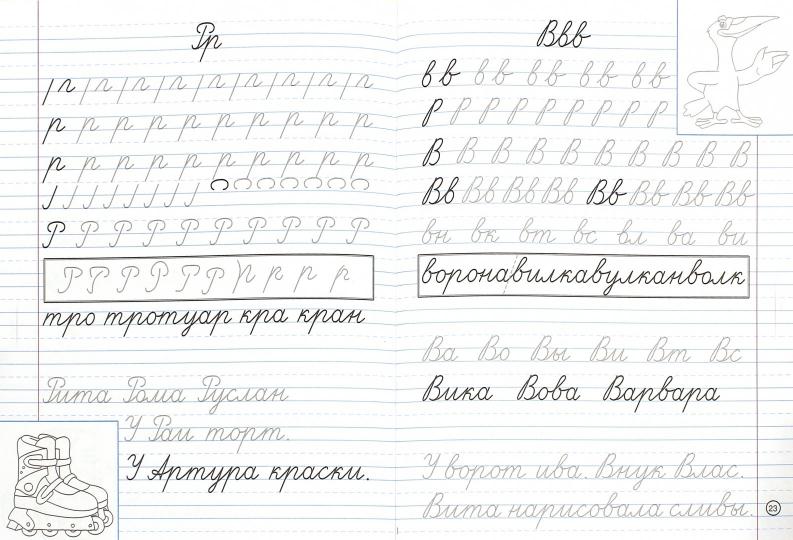 Рр
р р р р р р р р р р
р р р р р р р р р р
Р Р Р Р Р Р Р Р Р Р
Р Р Р Р Р Р р р р р
тро тротуар кра кран
Рита Рома Руслан
У Раи торт.
У Артура краски.
Ввв
вв вв вв вв вв
Р Р Р Р Р Р Р Р Р
В В В В В В В В В В
Вв Вв Вв Вв Вв Вв Вв Вв
вн вк вт вс вл ва ви
воронавилкавулканволк
Ва Во Вы Ви Вт Вс
Вика Вова Варвара
У ворот ива. Внук Влас.
Вита нарисовала сливы.
23